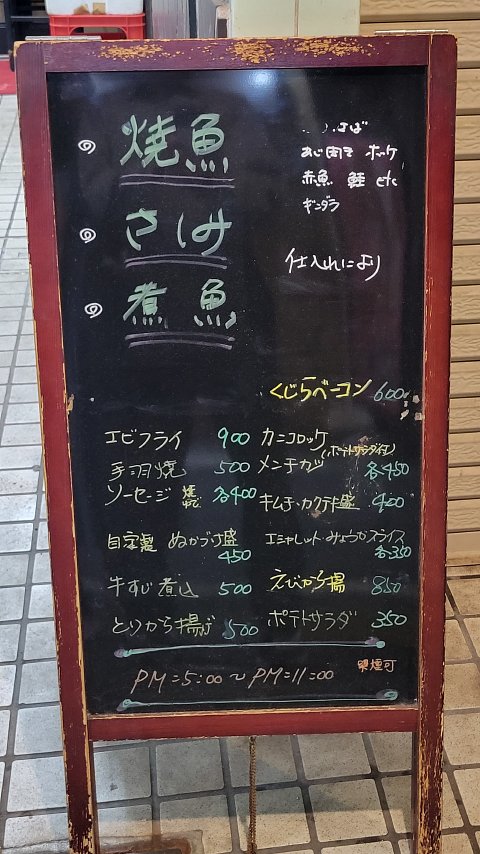 焼魚
さば
あじ開き ホッケ
赤魚 鮭 etc
ギンダラ
さしみ
仕入れにより
煮魚
くじらベーコン 600
エビフライ 900
カニコロッケ
(ポテトサラダ付)
手羽焼 500
メンチカツ 各450
ソーセージ 各400
キムチ・カクテキ盛 400
自家製 ぬかづけ盛
450
エシャレット みょうがスライス
各350
牛すじ煮込 500
えびから揚 850
とりから揚げ 500
ポテトサラダ 350
PM=5:00~PM=11:00
喫煙可